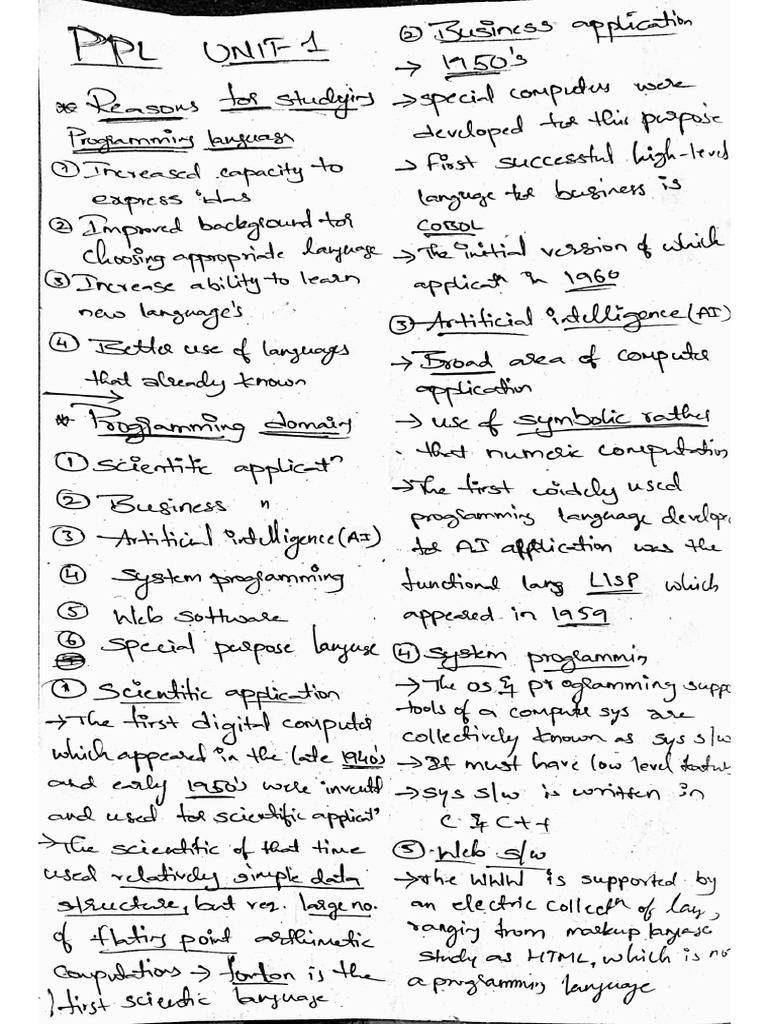 PPL UNIT-1
* Reasons for studying
Programming language
① Increased capacity to
express idas
② Improved background for
choosing appropriate language
③ Increase ability to learn
new language's
④ Better use of languages
that already known
* Programming domains
① Scientific applicatⁿ
② Business "
③ Artificial intelligence (AI)
④ System programming
⑤ Web software
⑥ special purpose languse
① Scientific application
→ The first digital computer
which appeared in the late 1940's
and early 1950's were inventd
and used for scientific applicatⁿ
→ The scientific of that time
used relatively simple data
structure, but req. large no.
of floting point arithmetic
computations → fortran is the
first scientic language
② Business application
→ 1950's
→ special computers were
developed for this purpose
→ First successful high-level
language for business is
COBOL
→ The initial version of which
applicatⁿ in 1960
③ Artificial intelligence (AI)
→ Broad area of computer
application
→ use of symbolic rather
that numeric computation
→ The first widely used
programming language develope
for AI application was the
functional lang LISP which
appeared in 1959
④ System programmin
→ The OS & programming suppo
tools of a compute sys are
collectively known as sys s/w
→ It must have low level featur
→ sys s/w is written in
C & C++
⑤ Web s/w
→ the WWW is supported by
an electric collectⁿ of lan,
ranging from markup langase
study as HTML, which is no
a programming language